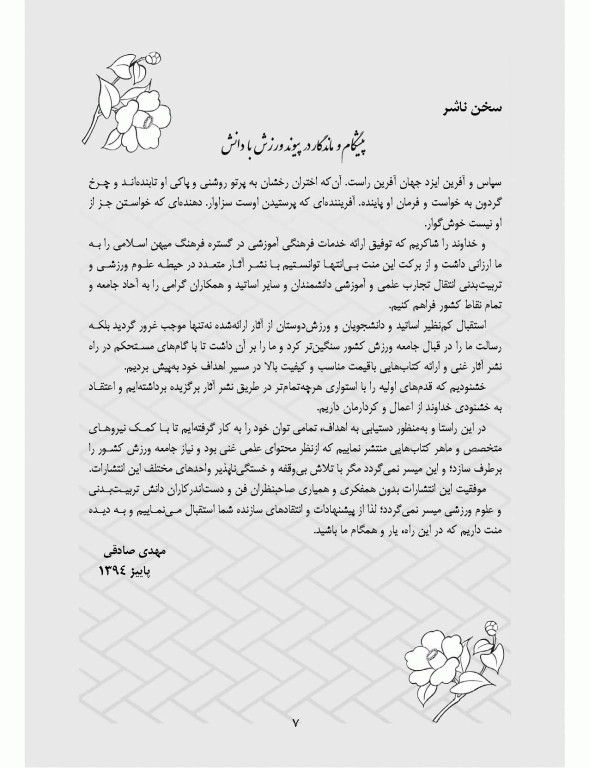 سخن ناشر
پیشگام و ماندگار در پیوند ورزش با دانش
سپاس و آفرین ایزد جهان آفرین راست. آن‌که اختران رخشان به پرتو روشنی و پاکی او تابنده‌اند و چرخ
گردون به خواست و فرمان او پاینده. آفریننده‌ای که پرستیدن اوست سزاوار. دهنده‌ای که خواستن جز از
او نیست خوش‌گوار.
و خداوند را شاکریم که توفیق ارائه خدمات فرهنگی آموزشی در گستره فرهنگ میهن اسلامی را به
ما ارزانی داشت و از برکت این منت بی‌انتها توانستیم با نشر آثار متعدد در حیطه علوم ورزشی و
تربیت‌بدنی انتقال تجارب علمی و آموزشی دانشمندان و سایر اساتید و همکاران گرامی را به آحاد جامعه و
تمام نقاط کشور فراهم کنیم.
استقبال کم‌نظیر اساتید و دانشجویان و ورزش‌دوستان از آثار ارائه‌شده نه‌تنها موجب غرور گردید بلکه
رسالت ما را در قبال جامعه ورزش کشور سنگین‌تر کرد و ما را بر آن داشت تا با گام‌های مستحکم در راه
نشر آثار غنی و ارائه کتاب‌هایی باقیمت مناسب و کیفیت بالا در مسیر اهداف خود به‌پیش بردیم.
خشنودیم که قدم‌های اولیه را با استواری هرچه‌تمام‌تر در طریق نشر آثار برگزیده برداشته‌ایم و اعتقاد
به خشنودی خداوند از اعمال و کردارمان داریم.
در این راستا و به‌منظور دستیابی به اهداف، تمامی توان خود را به کار گرفته‌ایم تا با کمک نیروهای
متخصص و ماهر کتاب‌هایی منتشر نماییم که ازنظر محتوای علمی غنی بود و نیاز جامعه ورزش کشور را
برطرف سازد؛ و این میسر نمی‌گردد مگر با تلاش بی‌وقفه و خستگی‌ناپذیر واحدهای مختلف این انتشارات.
موفقیت این انتشارات بدون همفکری و همیاری صاحبنظران فن و دست‌اندرکاران دانش تربیت‌بدنی
و علوم ورزشی میسر نمی‌گردد؛ لذا از پیشنهادات و انتقادهای سازنده شما استقبال می‌نماییم و به دیده
منت داریم که در این راه، یار و همگام ما باشید.
مهدی صادقی
پاییز ۱۳۹۴
۷